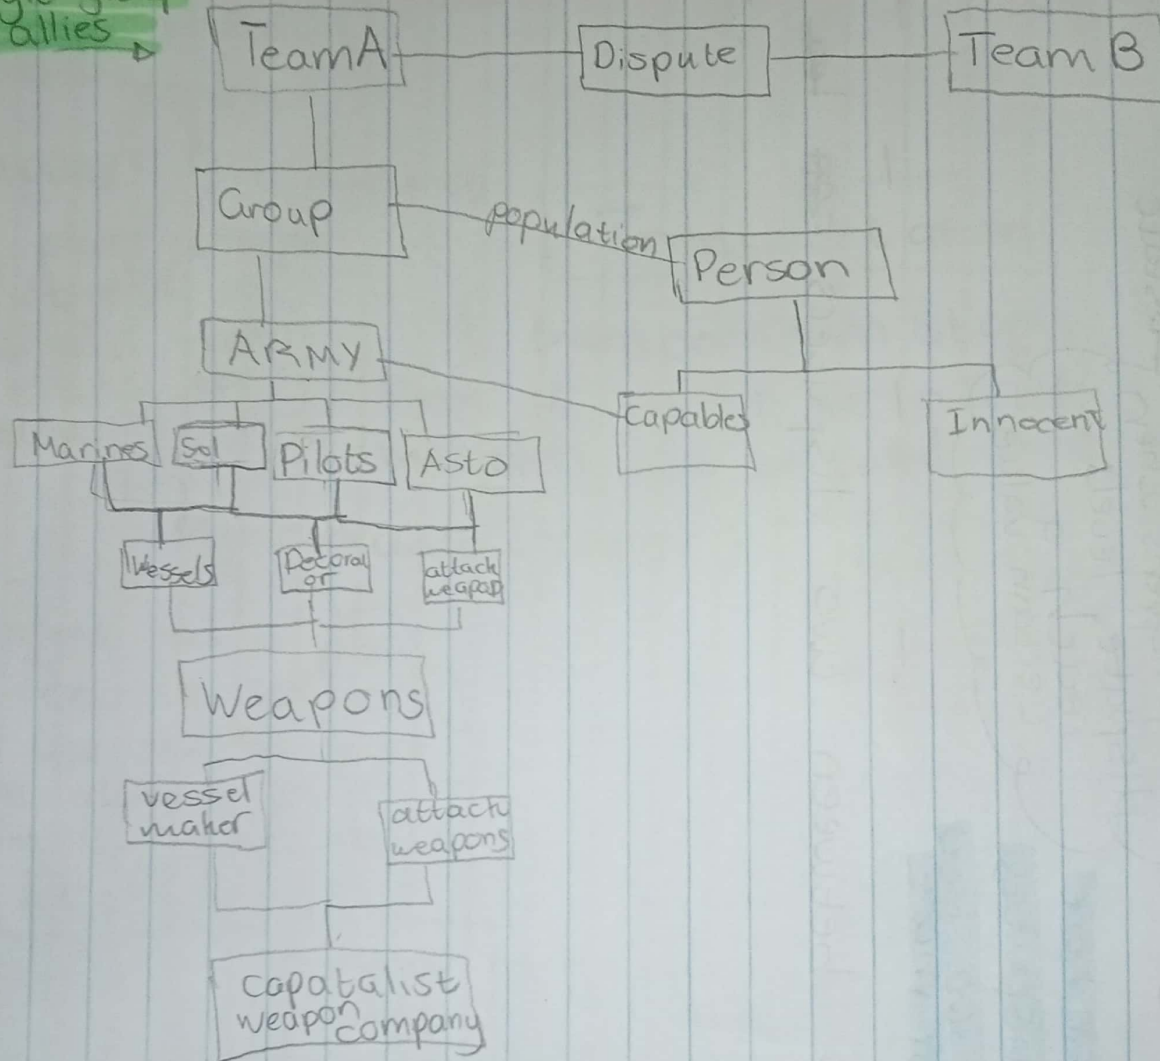 allies
Team A
Dispute
Team B
Group
population
Person
ARMY
Capable
Innocent
Marines
Sol
Pilots
Asto
Vessels
Decorat
or
attach
weapon
Weapons
vessel
maker
attach
weapons
capatalist
weapon
company